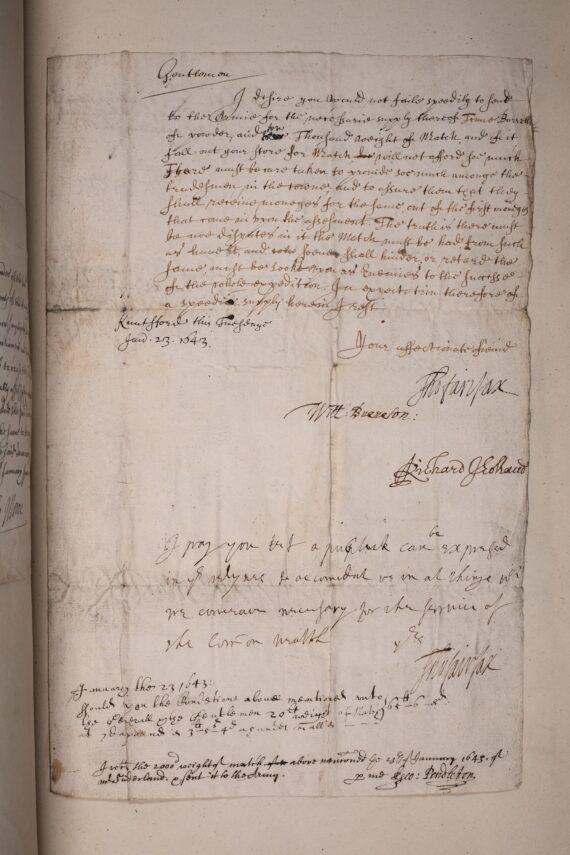 Gentlemen
I desire you would not faile speedily to send
to the Armie for the necessarie supply thereof Tenne Barrells
of powder, and Thousand weight of Match, and if it
fall out your store for Match will not afford soe much
There must be care taken to provide soe much amongst the
tradesmen in the towne, and to assure them that they
shall receive moneyes for the same, out of the first moneyes
that come in upon the assessment. The truth is there must
be noe disputes in it the Match must be had from such
as have it, and whosoever shall hinder, or retard the
same, must be lookt upon as Enemies to the successe
of the whole expedition. In expectation thereof of
a speedie supply herein I rest
Knutsford this Tuesdaye
Jan. 23. 1643.
Your affectionate freind
Tho: fairfax
Will: Brereton:
Richard
I pray you that a publick care be expressed
in to accomidat us in al things
we conceave necessary for the service of
the Common wealth
Tho: fairfax
January the 23 1643:
above mentioned unto
the Generall Gentlemen 20
at
the 2000 weight of match above mentioned the of January 1643. of
mr Sunderland. & sent it to the Army. p me Geo: Pendleton.